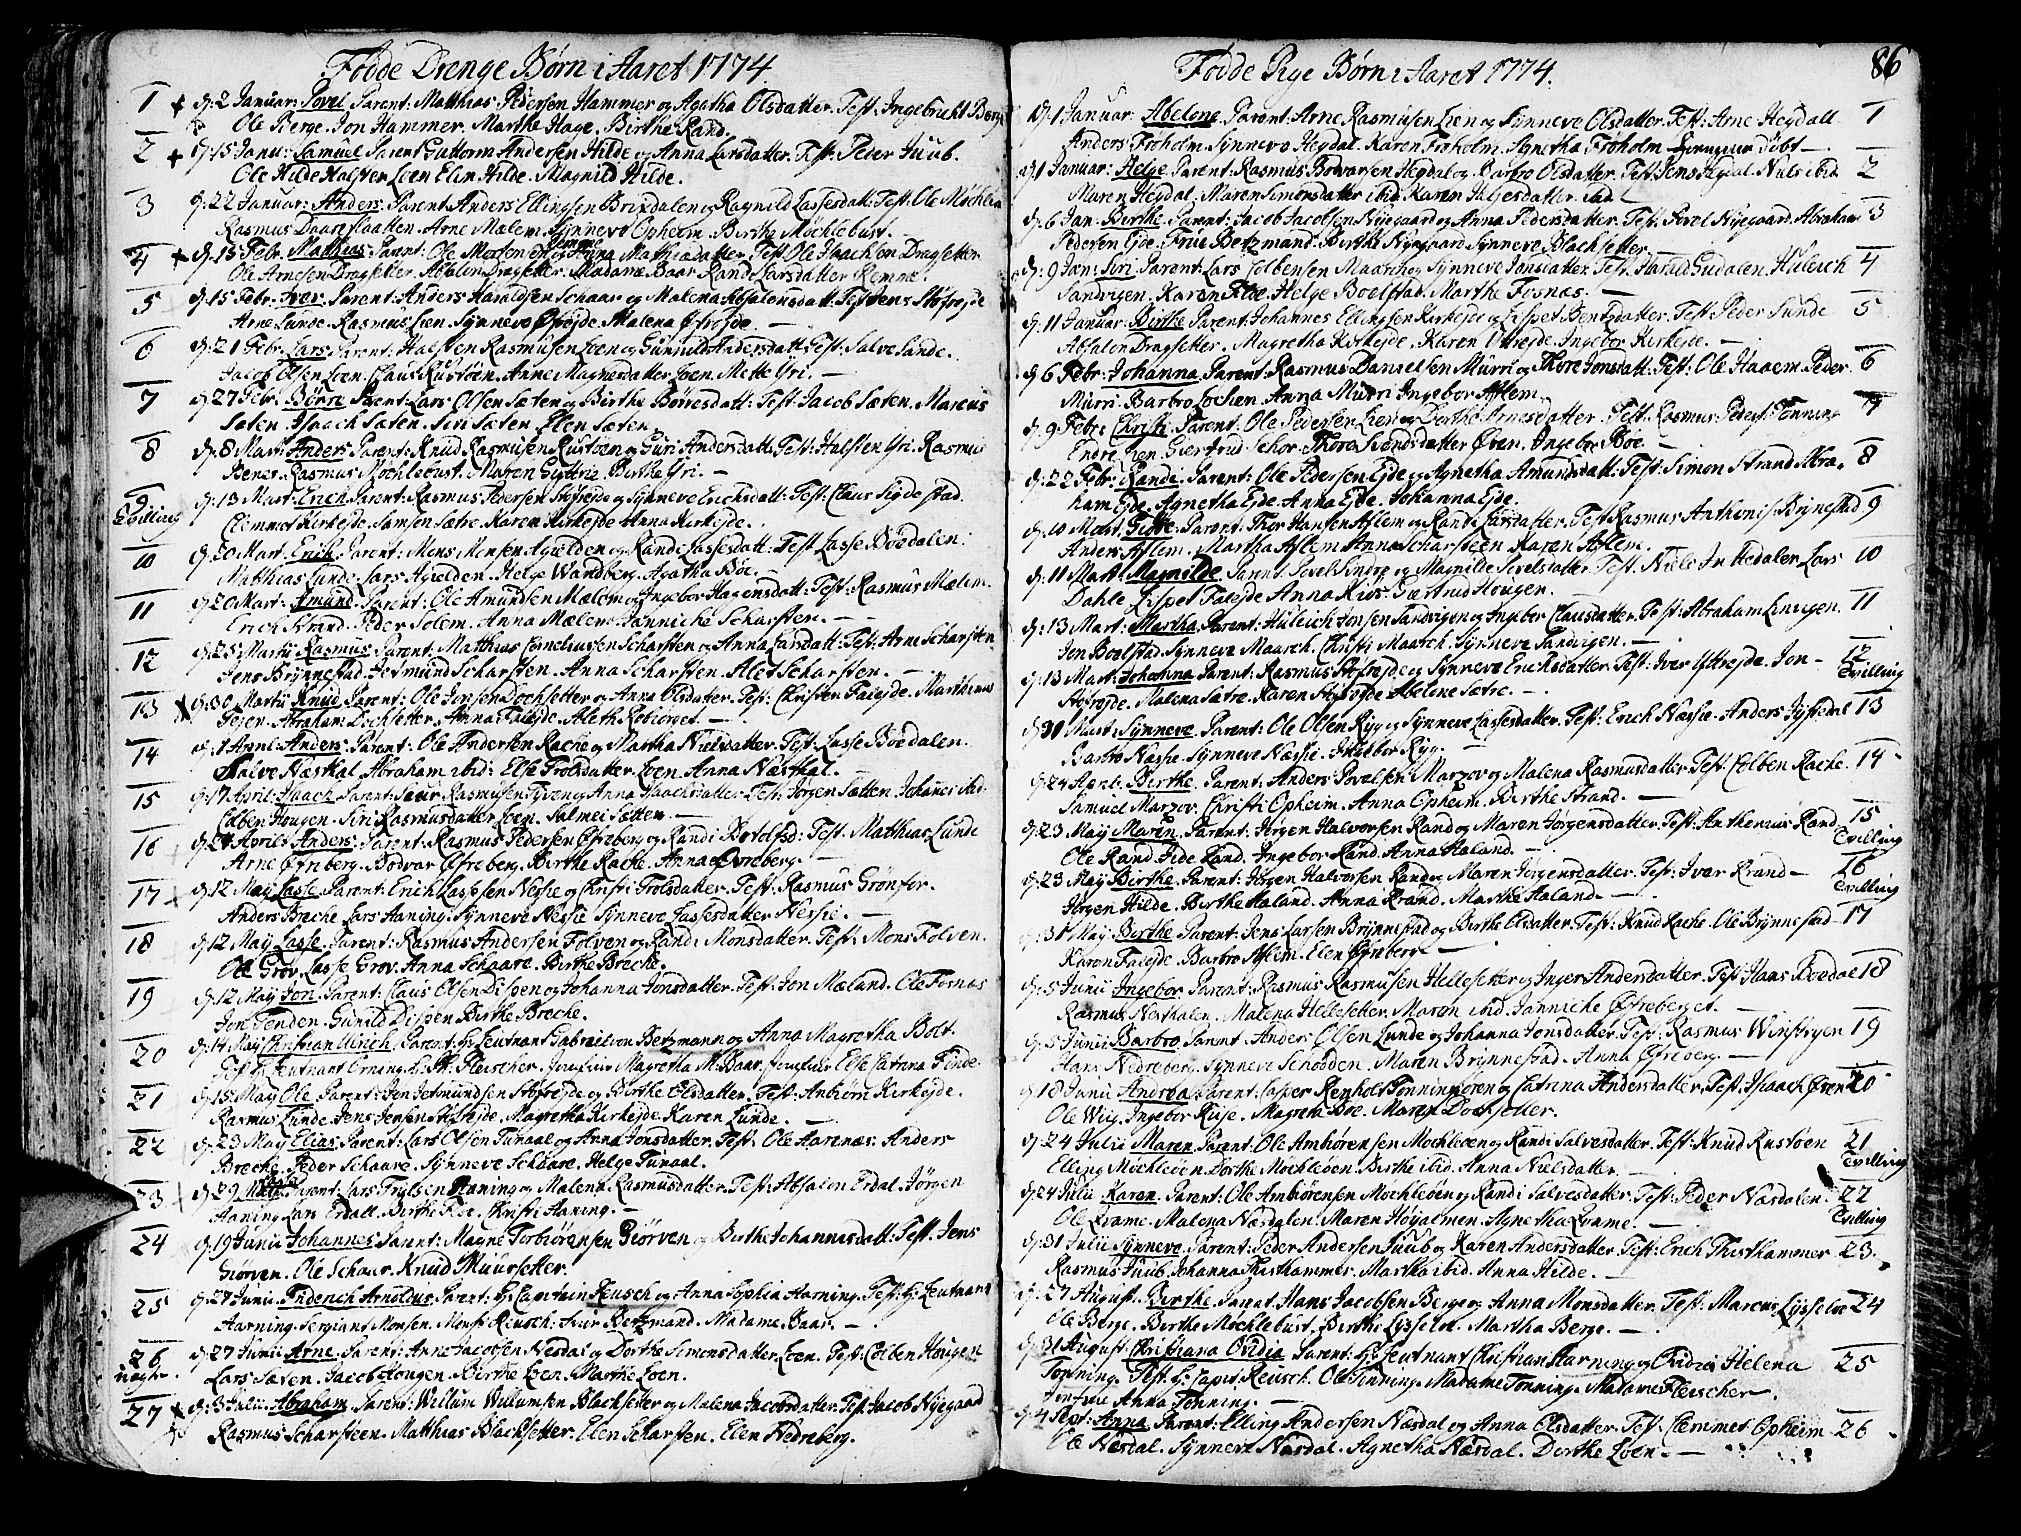 Fødde Drenge Børn i Aaret 1774.
1 + d: 2 Januar: Povel Parent: Matthias Pedersen Hammer og Agatha Olsdatter. Test: Ingebricht Berge
Ole Berge. Jon Hammer. Marthe Hage. Birthe Rand.
2 + d: 15 Janu: Samuel Parent Guttorm Andersen Hilde og Anna Larsdatter. Test: Peder Juub.
Ole Hilde Halsten Loen Elin Hilde. Magnild Hilde.
3 d: 22 Januar: Anders. Parent Anders Ellingsen Brixdalen og Ragnild Lassesdatt: Test: Ole Møchleb:
Rasmus Daareflaatten. Arne Mælem. Synneve Opheim. Birthe Møchlebust.
4 + d: 13 Febr. Matthias Parent: Ole Mortensen Remme og Anna Mathiasdatter Test Ole Isachsen Dragsetter
Ole Arnesen Dragsetter. Absalon Dragsetter. Madame Baar Rand Larsdatter Remme
5 d: 15 Febr. Iver Parent: Anders Haraldsen Schaar og Malena Absalonsdatt: Test Jens Støfrejde
Arne Lunde. Rasmus Loen. Synneve Øfrejde. Malena Øfrejde.
6 d: 21 Febr. Lars Parent: Halsten Rasmusen Loen og Gunnild Andersdatt Test: Salve Sande.
Jacob Olsen Loen. Claus Rustøen. Anne Magnesdatter Loen. Mette Yri.
7 d: 27 Febr: Børre Parent: Lars Olsen Sæten og Birthe Børresdatt: Test: Jacob Sæten. Marcus
Sæten. Isaach Sæten. Siri Sæten Elen Sæten.
8 d: 8 Mart: Anders Parent: Knud Rasmusen Rustøen og Guri Andersdatt: Test: Halsten Yri. Rasmus
Bener. Rasmus Møchlebust. Maren Gyttrie. Birthe Yri.
9 Tvilling d: 13 Mart: Erich Parent: Rasmus Pedersen Støfrejde og Synneve Erichsdatt: Test: Claus Sigdestad.
Clemmet Kirkejde. Samsen Sætre. Karen Kirkejde Anna Kirkejde.
10 d: 20 Mart: Erich. Parent: Mons Monsen Agielden og Rande Lassesdatt: Test Lasse Bødalen.
Matthias Lunde. Lars Agielden. Helge Wandberg. Agatha Bøe.
11 d: 20 Mart: Amund. Parent: Ole Amundsen Mælem og Ingebor Hagensdatt: Test: Rasmus Mælem.
Erich Strand. Peder Solem. Anna Mælem. Janniche Scharsten.
12 d: 25 Martii Rasmus Parent: Matthias Corneliusen Scharsten og Anna Larsdatt: Test: Arne Scharsten
Jens Brynnestad. Jetmund Scharsten. Anna Scharsten. Alet Scharsten.
13 d: 30 Martii Knud Parent: Ole Jonsen Dochsetter og Anna Olsdatter. Test: Christen Faleyde. Marthinus
Abraham Dochsetter. Anna Faleyde. Aleth
14 d: 1 April: Anders: Parent: Ole Andersen Rache og Martha Nielsdatter. Test: Lasse Bødalen.
Salve Næsthal. Abraham ibid: Else Trolsdatter Loen. Anna Næsthal.
15 d: 17 April: Isaach Parent: Siur Rasmusen Tyven og Anna Isaachsdatter. Test: Jørgen Sætten. Johanes ibid.
Colben Hougen. Siri Rasmusdatter Loen. Salmei Sætten.
16 d: 24 April: Anders: Parent: Rasmus Pedersen Øfreberg og Randi Botolfsd: Test: Matthias Lunde
Arne Øfreberg. Bodvar Øfreberg. Birthe Rache. Anna Øvreberg.
17 d: 12 May Lasse. Parent: Erich Lassesen Nesje og Christi Trolsdatter. Test: Rasmus Grønfor.
Anders Breche Lars Haning. Synneve Nesje Synneve Lassesdatter Nesje.
18 d: 12 May Lasse. Parent: Rasmus Andersen Folven og Randi Monsdatter. Test: Mons Folven.
Ole Grov. Lasse Grov. Anna Schaare. Birthe Breche.
19 d: 12 May Jon. Parent: Claus Olsen Dispen og Johanna Jonsdatter. Test: Jon Mæland. Ole Fosnæs
Jon Tenden. Gunild Dispen Birthe Breche.
20 d: 14 May Christian Ulrich Parent: Hr Leutnant Gabriel von Betzmann og Anna Magretha Bolt.
Test: Hr Leutnant Erning. Fleischer. Jomfrue Magretha M. Baar. Jomfrue Else Catrina Finde.
21 d: 15 May Ole Parent: Jon Jetmundsen Støfrejde og Birthe Olsdatter. Test: Anbiørn Kirkejde.
Rasmus Lunde. Jens Jensen Støfrejde. Magretha Kirkejde. Karen Lunde.
22 d: 23 May Elias Parent: Lars Olsen Tunaal og Anna Jonsdatter. Test: Ole Aarenæs. Anders
Breche. Peder Schaare. Synneve Schaare. Helge Tunaal.
23 d: 29 May Parent: Lars Trulsen Haning og Malena Rasmusdatter. Test: Absalon Erdal. Jørgen
Haning. Lars Erdall. Birthe Eide. Christi Haning.
24 d: 19 Junii Johannes Parent: Magne Torbiørensen Giørven og Birthe Johannisdatt: Test. Jens
Giørven. Ole Schaar. Knud Muursetter.
25 d: 27 Junii. Friderich Arnoldus. Parent: Hr Capitain Reusch og Anna Sophia Harning. Test: Hr Leutnant
Aarning. Sergiant Monsen. Mons: Reusch: Frue Betzmand. Madame Baar.
26 uægte. d: 27 Junii Arne. Parent: Arne Jacobsen Nesdal og Dorthe Simonsdatter Loen. Test: Colben Hougen
Lars Sæten. Jacob Hougen. Birthe Loen. Marthe Loen.
27 d: 3 Julii: Abraham. Parent: Willum Willumsen Blachsetter og Malena Jacobsdatter. Test: Jacob Nyegaard
Rasmus Scharsteen. Matthias Blachsetter. Elen Scharsten. Elen Nedreberg.
86
Fødde Pige Børn i Aaret 1774.
d: 1 Januar: Abelone. Parent: Arne Rasmusen Loen og Synneve Olsdatter. Test: Arne Hegdall 1
Anders Frøholm. Synneve Hegdal. Karen Frøholm. Agnetha Frøholm døbt
d: 1 Januar: Helge. Parent: Rasmus Bodvarsen Hegdal og Barbro Olsdatter. Test: Jens Hegdal. Niels ibid 2
Maren Hegdal. Maren Simonsdatter ibid. Karen Heljesdatter ibid
d: 6 Jan: Birthe. Parent: Jacob Jacobsen Nyegaard og Anna Pedersdatter. Test: Povel Nyegaard. Abraham 3
Pedersen Ejde. Frue Betzmand. Birthe Nyegaard Synneve Blachsetter
d: 9 Jan: Siri Parent: Lars Colbensen Maarch og Synneve Jonsdatter. Test: Harald Gudalen. Huleich 4
Sandvigen. Karen Floe. Helge Boelstad. Marthe Fosnæs.
d: 11 Januar: Birthe Parent: Johannes Ellingsen Kirkejde og Lispet Bentsdatter. Test: Peder Sunde 5
Absalon Dragsetter. Magretha Kirkejde. Karen Ytrejde. Ingebor Kirkejde.
d: 6 Febr: Johanna. Parent: Rasmus Danielsen Murri og Thore Jonsdatt: Test: Ole Haaem. Peder 6
Murri. Barbro Lochen Anna Murri Ingebor Aflem.
d: 9 Febr: Christi. Parent: Ole Pedersen Loen og Dorthe Arnesdatter. Test: Rasmus Peders: Tonning 7
Endre Loen. Giertrud Schor. Thora Svendsdatter Øren. Ingebor Boe
d: 22 Febr: Randi. Parent: Ole Pedersen Ejde og Agnetha Amundsdatt: Test: Simon Strand. Abra- 8
ham Ejde. Agnetha Ejde. Anna Ejde. Johanna Ejde.
d: 10 Mart: Giøre. Parent: Thor Hansen Aflem og Randi Larsdatter. Test Rasmus Anthonis: Brynestad 9
Anders Aflem. Martha Aflem Anna Scharsteen Karen Aflem.
d: 11 Mart: Magnilde Parent: Povel Sindre og Magnilde Povelsdatter. Test: Niels Indredalen Lars 10
Dahle Lispet Faleyde Anna Kirs Giertrud Hougen.
d: 13 Mart: Martha. Parent: Huleich Jonsen Sandvigen og Ingebor Clausdatter. Test: Abraham Linvigen. 11
Jon Boelstad. Synneve Maarch. Christi Maarch. Synneve Sandvigen.
d: 13 Mart: Johanna. Parent: Rasmus Støfrejde og Synneve Erichsdatter. Test: Iver Ystrejde. Jon 12 Tvilling
Støfrejde. Malena Sætre. Karen Støfrejde Abelene Sætre.
d: 31 Mart: Synneve. Parent: Ole Olsen Ryg og Synneve Lassesdatter. Test: Erich Næsje. Anders Jystedal 13
Barbro Næsje. Synneve Næsje. Ingebor Ryg.
d: 24 April: Birthe. Parent: Anders Povelsen Marzov og Malena Rasmusdatter. Test: Colben Rache 14
Samuel Marzov. Christi Opheim. Anna Opheim. Birthe Strand.
d: 23 May Maren. Parent: Jørgen Halvorsen Rand og Maren Jørgensdatter. Test: Anthonius Rand. 15 Tvilling
Ole Rand. Jide Rand. Ingebor Rand. Anna Haland.
d: 23 May Birthe. Parent: Jørgen Halvorsen Rand og Maren Jørgensdatter. Test: Ivar Rrand 16 Tvilling
Jørgen Hilde. Birthe Haland. Anna Rrand. Marthe Haland.
d: 31 May: Berthe Parent: Jens Larsen Brynnestad og Birthe Olsdatter. Test: Knud Rache. Ole Brynnestad 17
Karen Faleyde. Barbro Aflem. Elen Øfreberg.
d: 5 Junii Ingebor. Parent: Rasmus Rasmusen Hellesetter og Inger Andersdatter. Test: Hans Roedal 18
Rasmus Nesthalen. Malena Hellesetter. Maren ibid. Janniche Øfreberget.
d: 5 Junii Barbro. Parent: Anders Olsen Lunde og Johanna Jonsdatter. Test: Rasmus Winsrygen 19
Hans Nedreberg. Synneve Schødden. Maren Brynnestad. Anna Øfreberg.
d: 18 Junii Andrea. Parent: Casper Reinholt Tonning Øren og Catrina Andersdatter. Test: Isaach Øren 20
Ole Wiig. Ingebor Ruse. Magreta Bøe. Maren Dochsetter.
d: 24 Julii Maren. Parent: Ole Ambiørensen Mochleøen og Randi Salvesdatter. Test: Knud Rustøen 21 Tvilling
Elling Mochleøen. Dorthe Møchleøen. Birthe ibid. Anna Nielsdatter.
d: 24 Julii Karen. Parent: Ole Ambiørensen Møchleøen og Randi Salvesdatter. Test: Peder Næsdalen. 22 Tvilling
Ole Qvame. Malena Næsdalen. Maren Høyalmen. Agnetha Qvame.
d: 31 Julii Synneve. Parent: Peder Andersen Juub og Karen Andersdatter. Test: Erich Thisthammer 23
Rasmus Juub. Johanna Thisthammer. Martha ibid. Anna Hilde.
d: 27 August. Birthe. Parent Hans Jacobsen Berge og Anna Monsdatter. Test: Marcus Lysseloe 24
Ole Berge. Birthe Mochlebust. Birthe Lysseloe. Martha Berge.
d: 31 August: Christiana Ovidia Parent: Hr Leutnant Christian Harning og Ovidia Helena 25
Tonning. Test: Hr Capit. Reusch. Ole Tonning. Madame Tonning. Madame Fleischer.
Jomfrue Anna Tonning.
d: 4 Sept: Anna. Parent: Elling Andersen Næsdal og Anna Olsdatter. Test: Clemmet Opheim 26
Ole Næsdal. Synneve Næsdal. Agnetha Næsdal. Dorthe Loen.